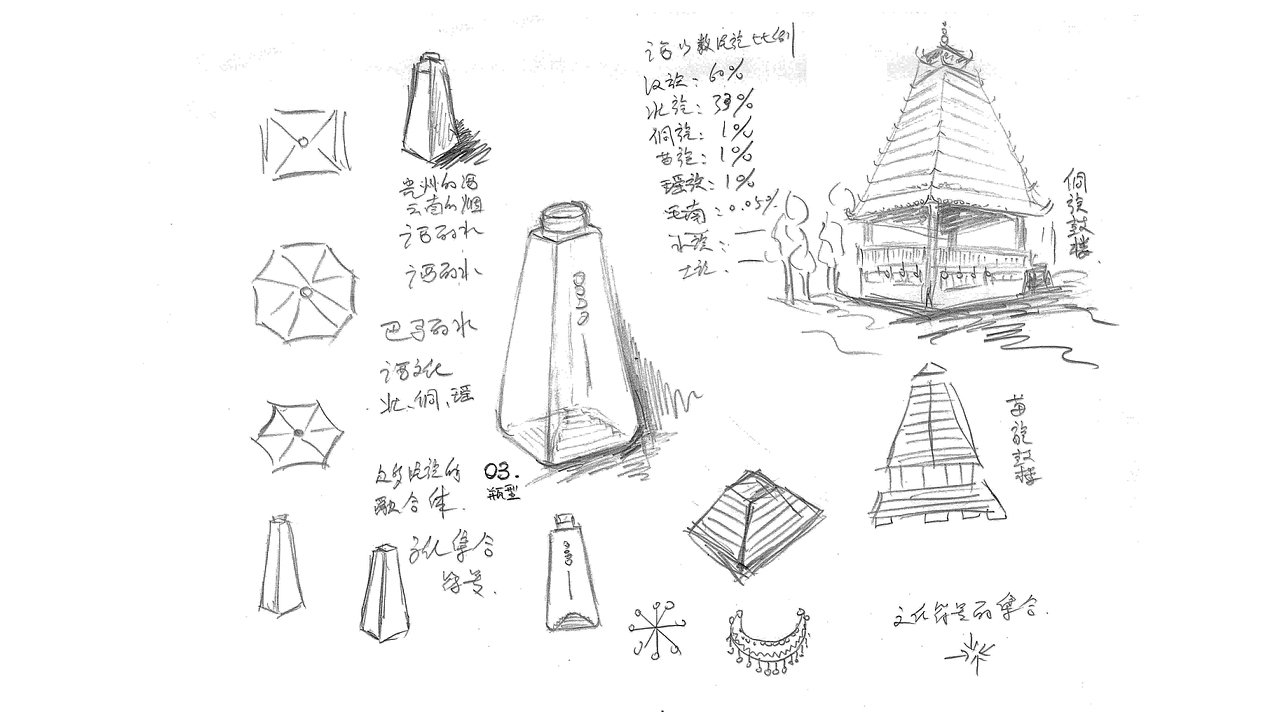 少数民族比例
汉族：60%
壮族：33%
侗族：1%
苗族：1%
瑶族：1%
毛南：0.05%
水族：
土族．
侗族鼓楼．
贵州的酒
云南的烟
的水
的水
巴马的水
文化
壮、侗、瑶
众多民族的
融合体．
03.
瓶型
文化集合
符号．
苗族鼓楼
文化符号的集合．